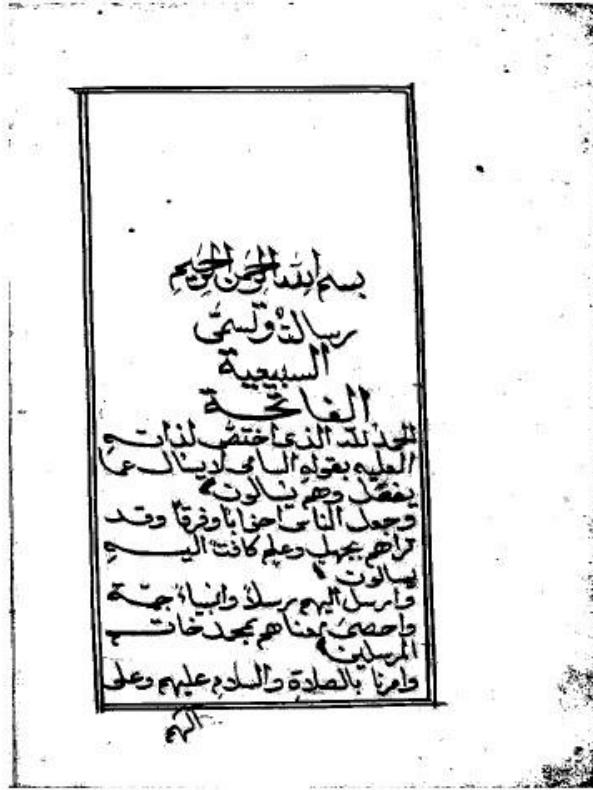 بسم الله الرحمن الرحيم
رسالة وتسمى
السبيعية
الفاتحة
الحمد لله الذي اختص لذاته
العليه بقوله السامي لا يسال عما
يفعل وهم يسالون
وجعل الناس احزابا وفرقا وقد
تراهم بجهل وعلم كافة اليه
يسالون
وارسل اليهم رسلا وانبياء جمة
واحصى معناهم بمحمد خاتم
المرسلين
وامرنا بالصلاة والسلام عليهم وعلى
الهم